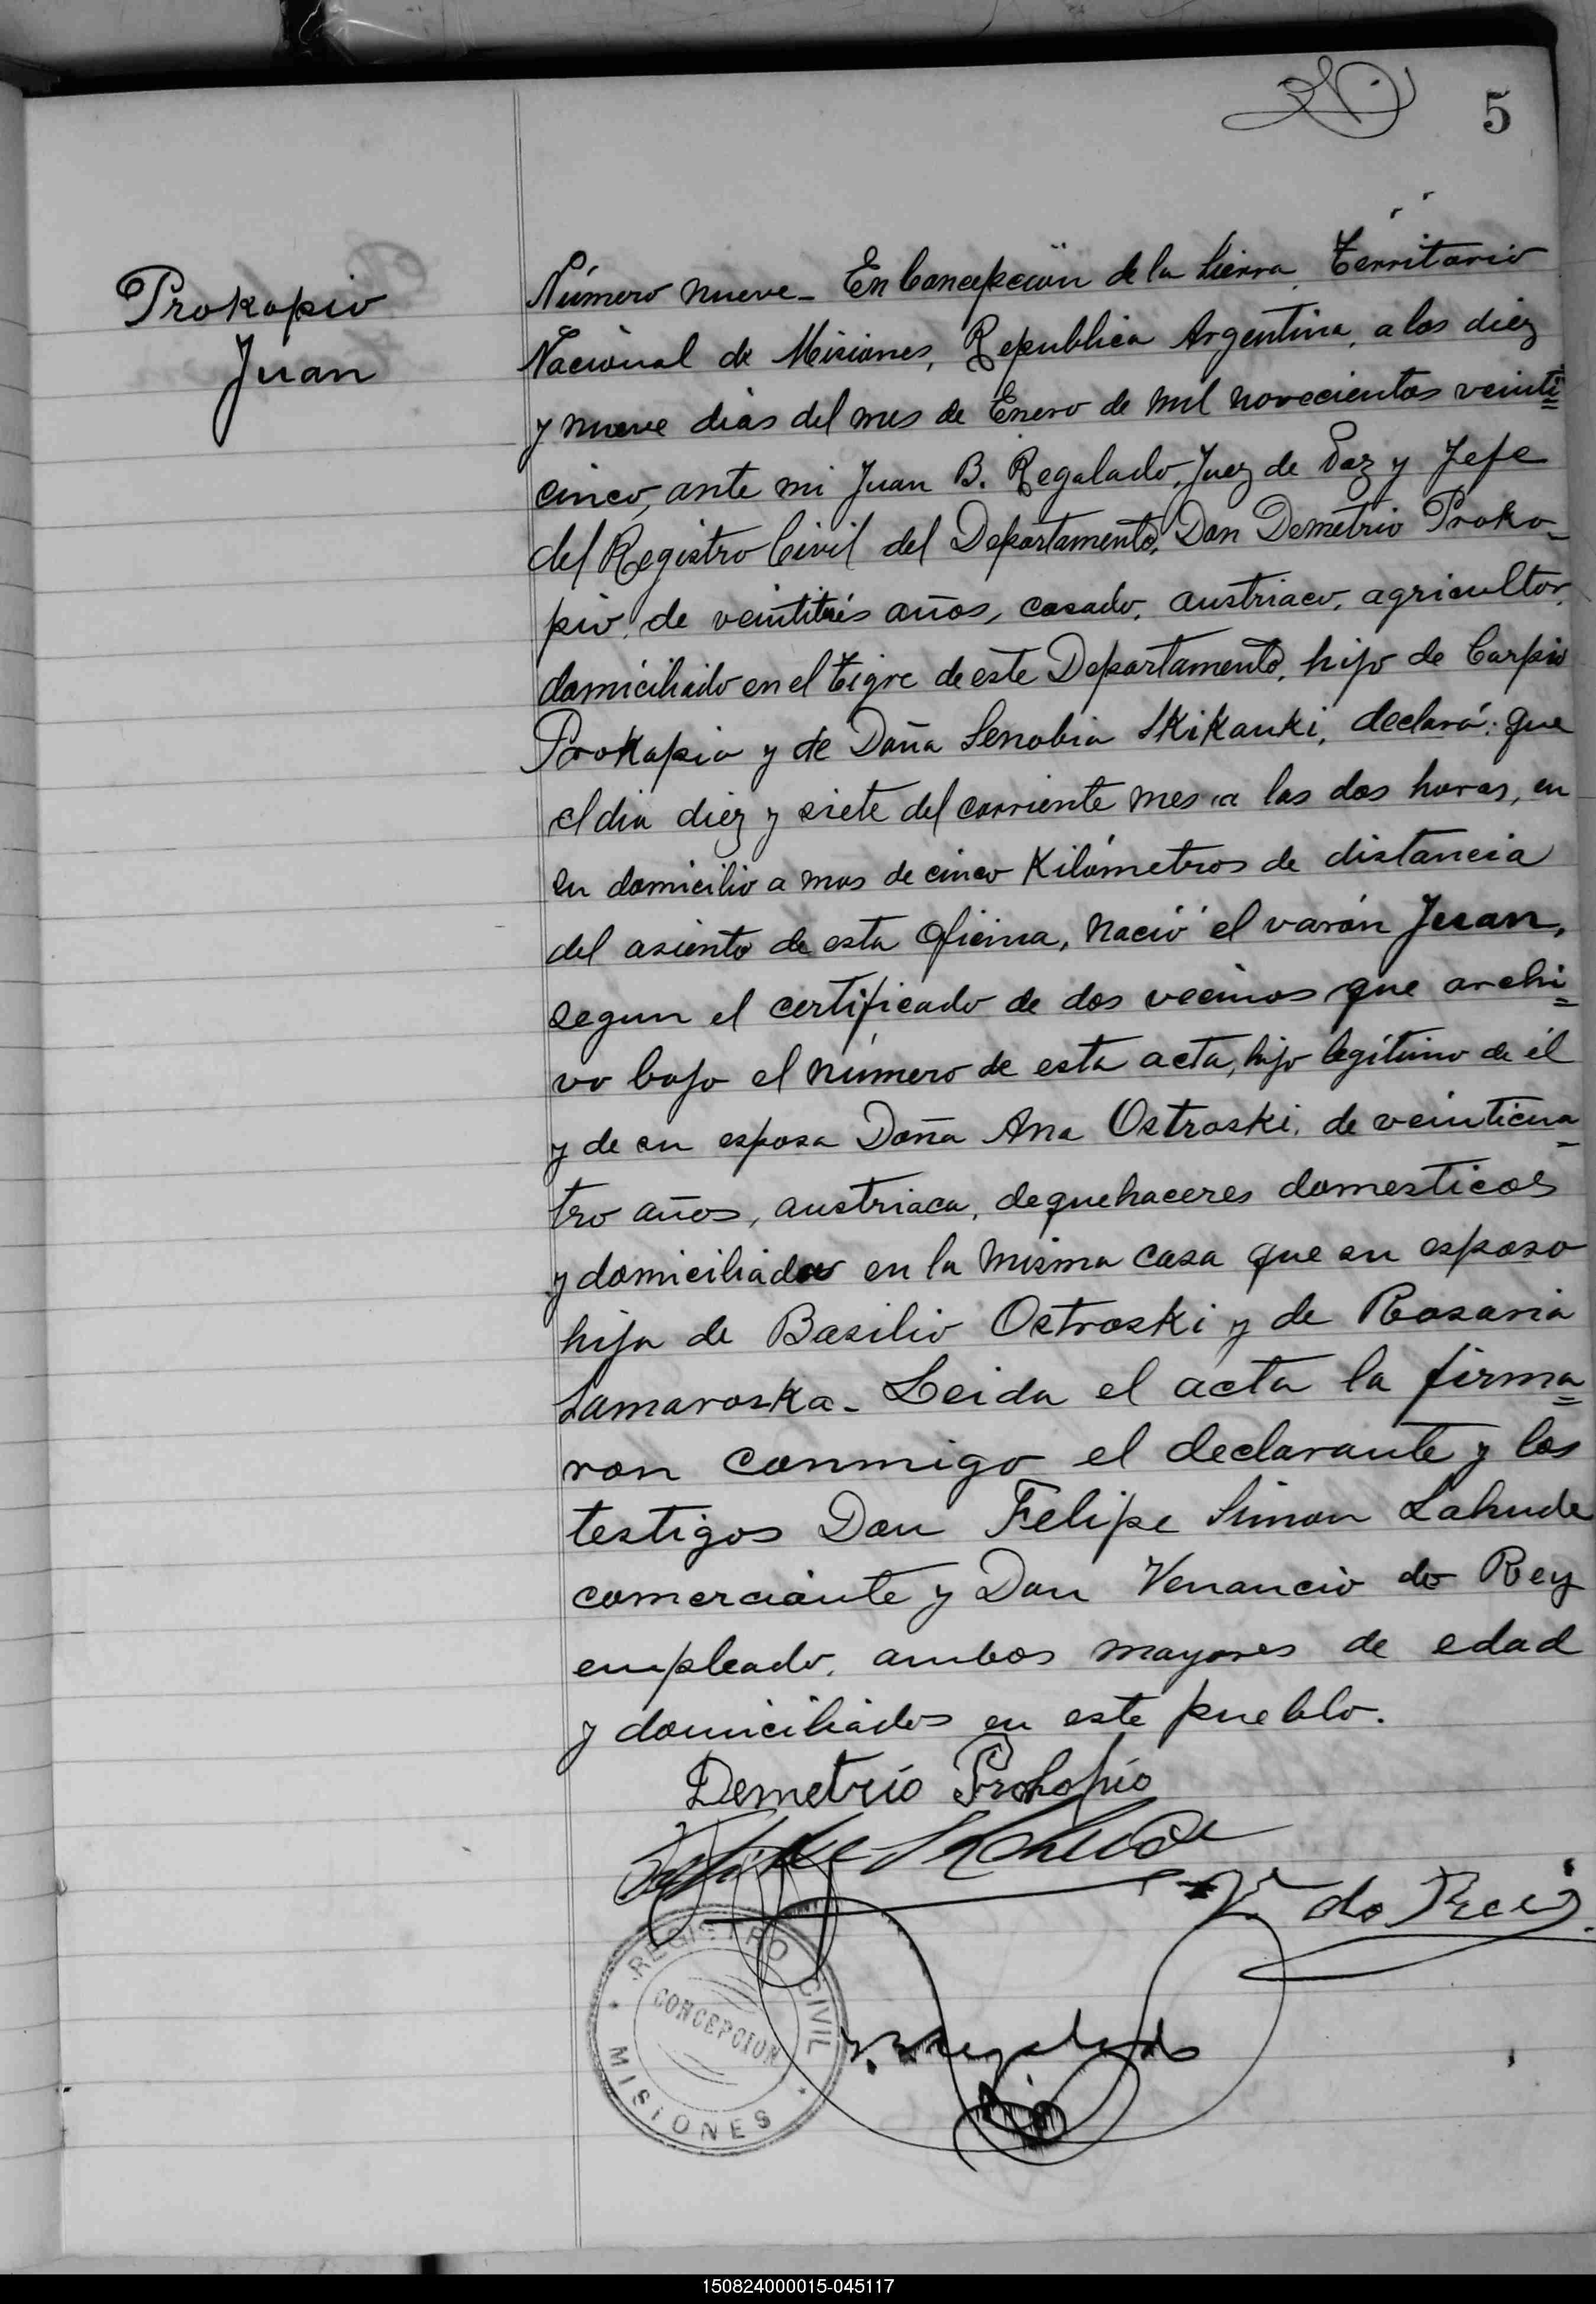 5
Prokopio
Juan
Número nueve_ En Concepción de la Sierra, Territorio
Nacional de Misiones, Republica Argentina, a los diez
y nueve dias del mes de Enero de mil novecientos veinti=
cinco, ante mi Juan B. Regalado, Juez de Paz y Jefe
del Registro Civil del Departamento, Don Demetrio Proko_
pio, de veintitrés años, casado, austriaco, agricultor,
domiciliado en el Tigre de este Departamento, hijo de Carpio
Prokopio y de Doña Senobia Skikauki, declaró: que
el dia diez y siete del corriente mes a las dos horas, en
su domicilio a mas de cinco Kilómetros de distancia
del asiento de esta Oficina, nació el varón Juan,
segun el certificado de dos vecinos que archi=
vo bajo el número de esta acta, hijo legítimo de él
y de su esposa Doña Ana Ostroski, de veinticua=
tro años, austriaca, de quehaceres domesticos
y domiciliada en la misma casa que su esposo
hija de Basilio Ostroski y de Rosaria
Samaroska_ Leida el acta la firma=
ron conmigo el declarante y los
testigos Don Felipe Simon Lahude
comerciante y Don Venancio do Rey
empleado, ambos mayores de edad
y domiciliados en este pueblo.
Demetrio Prokopio
Felipe S Lahude
V. do Reis
REGISTRO CIVIL
CONCEPCION
MISIONES
J. B. Regalado
150824000015-045117